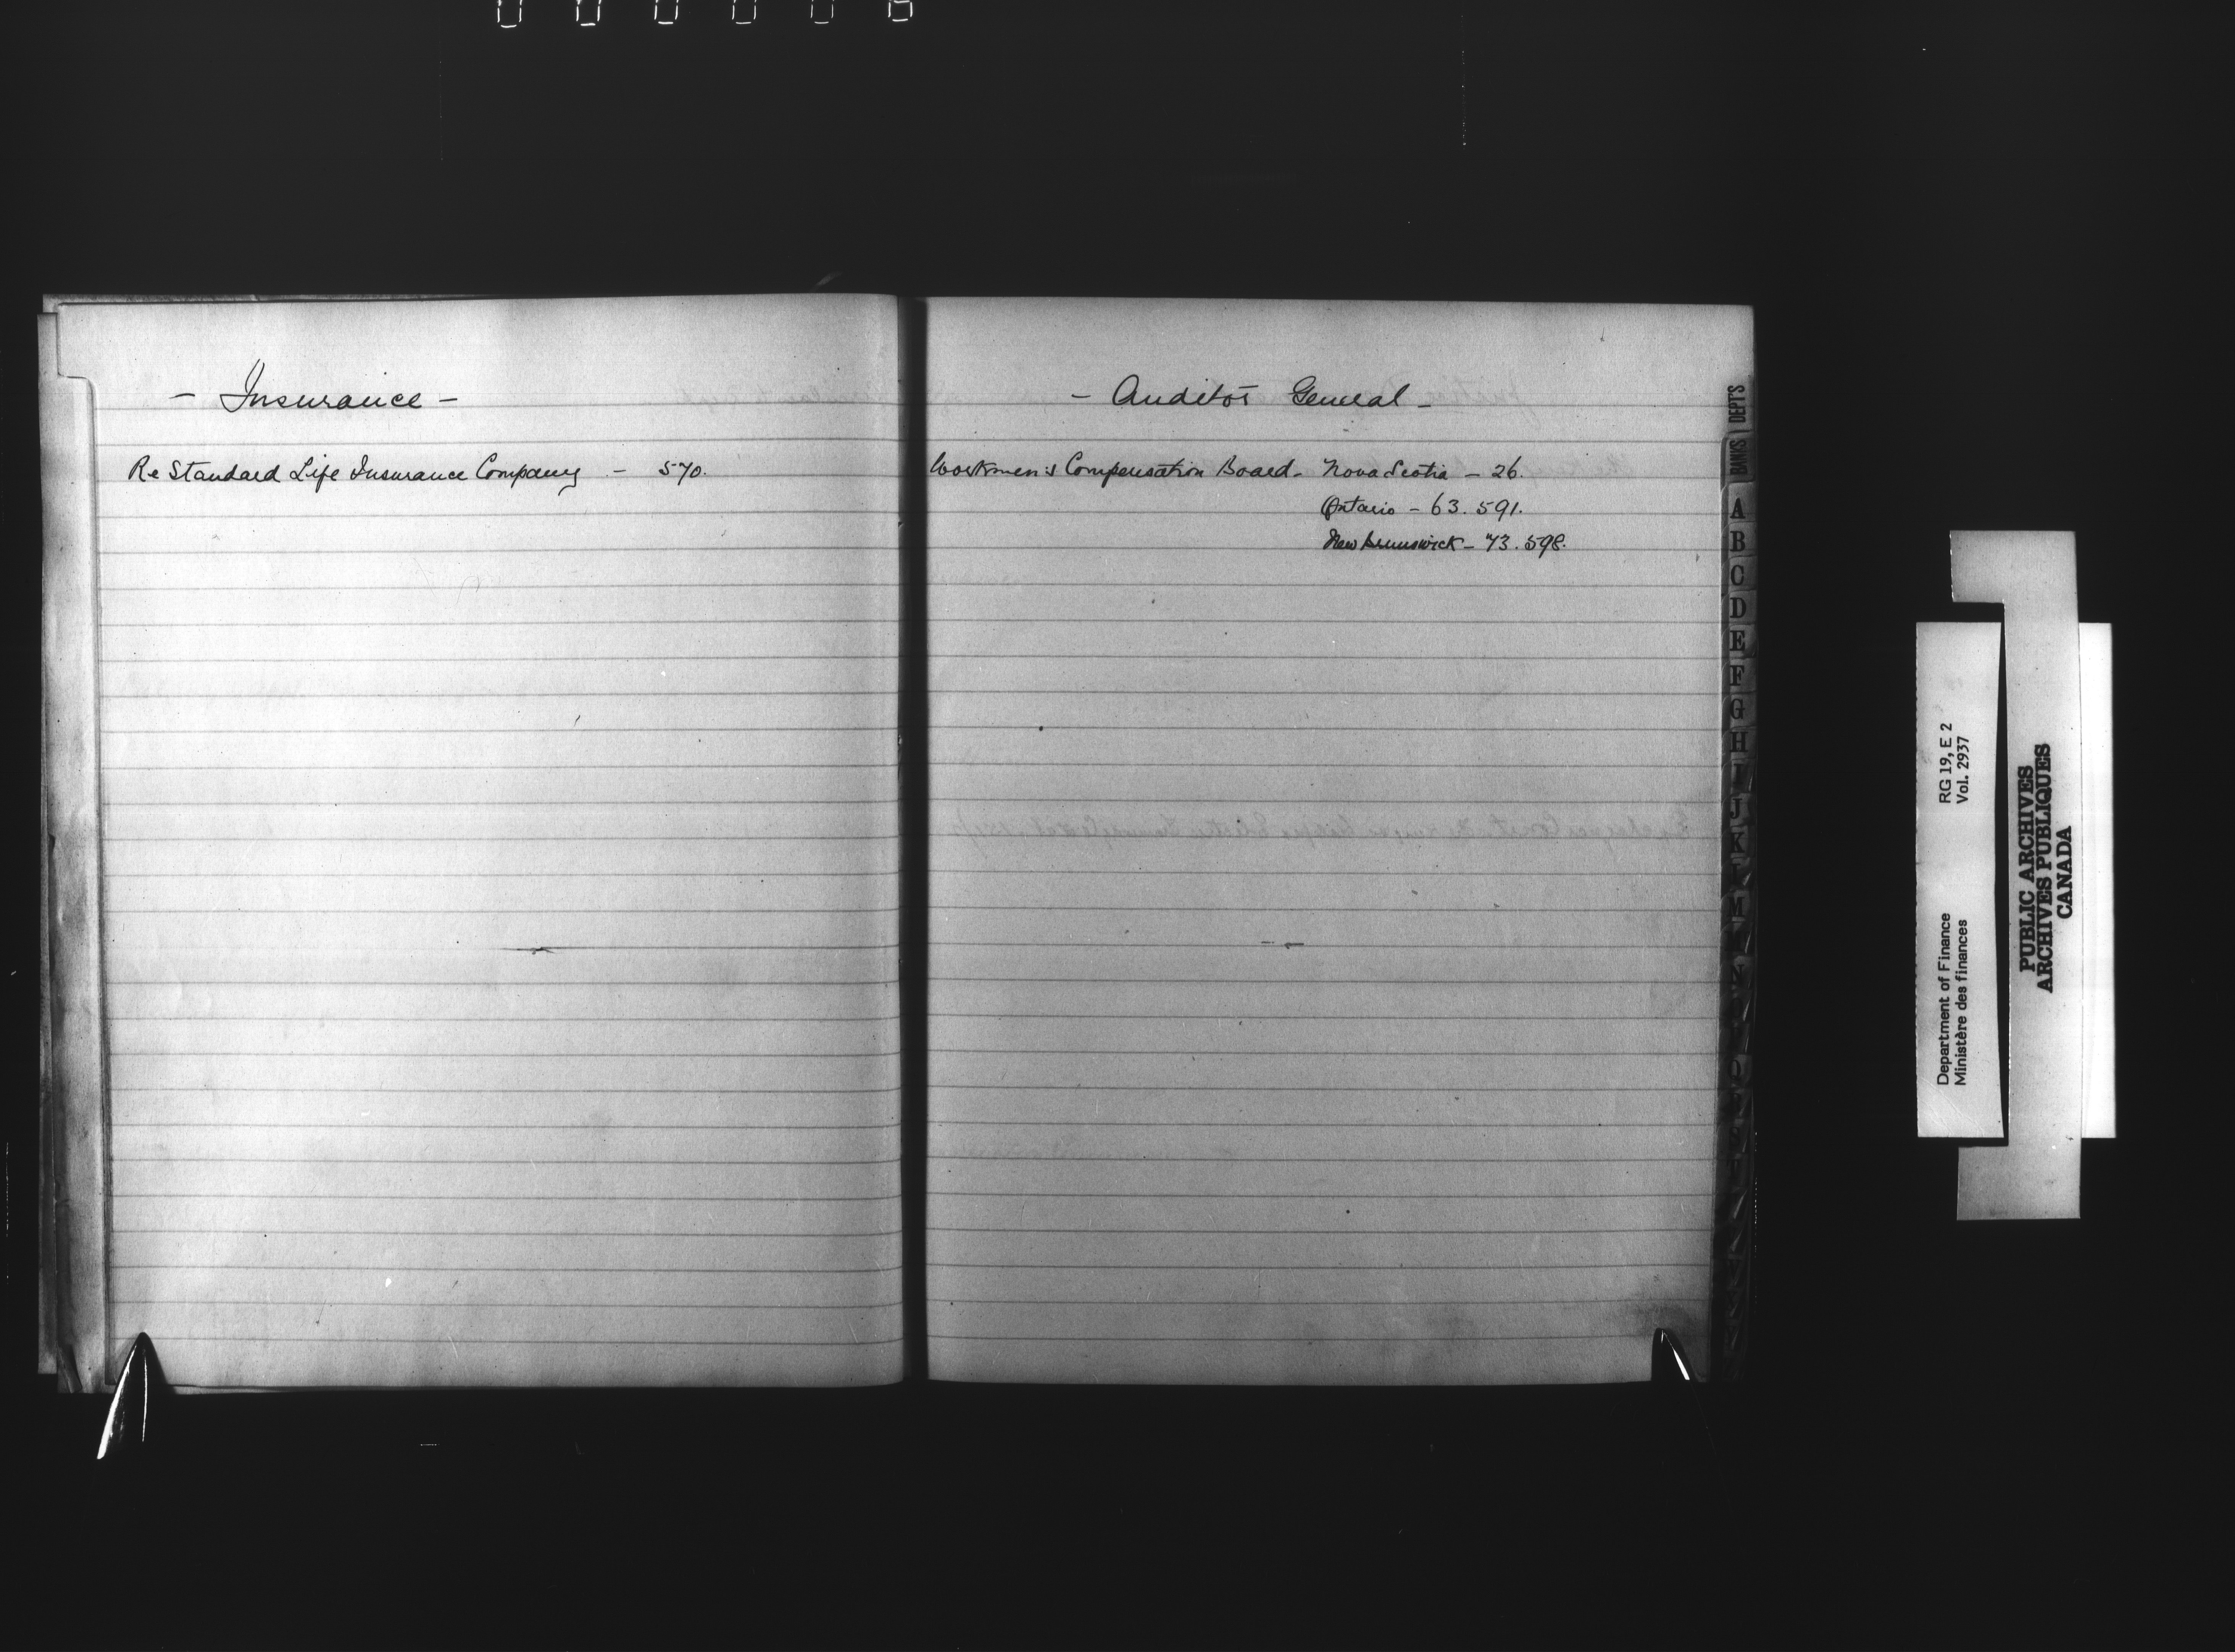 - Insurance -
Re Standard Life Insurance Company - 570.
- Auditor General -
Workmen's Compensation Board - Nova Scotia - 26.
Ontario - 63. 591.
New Brunswick - 73. 598.
DEPT'S
BANKS
A
B
C
D
E
F
G
H
I
J
K
M
N
Department of Finance RG 19, E 2
Ministère des finances Vol. 2937
PUBLIC ARCHIVES
ARCHIVES PUBLIQUES
CANADA